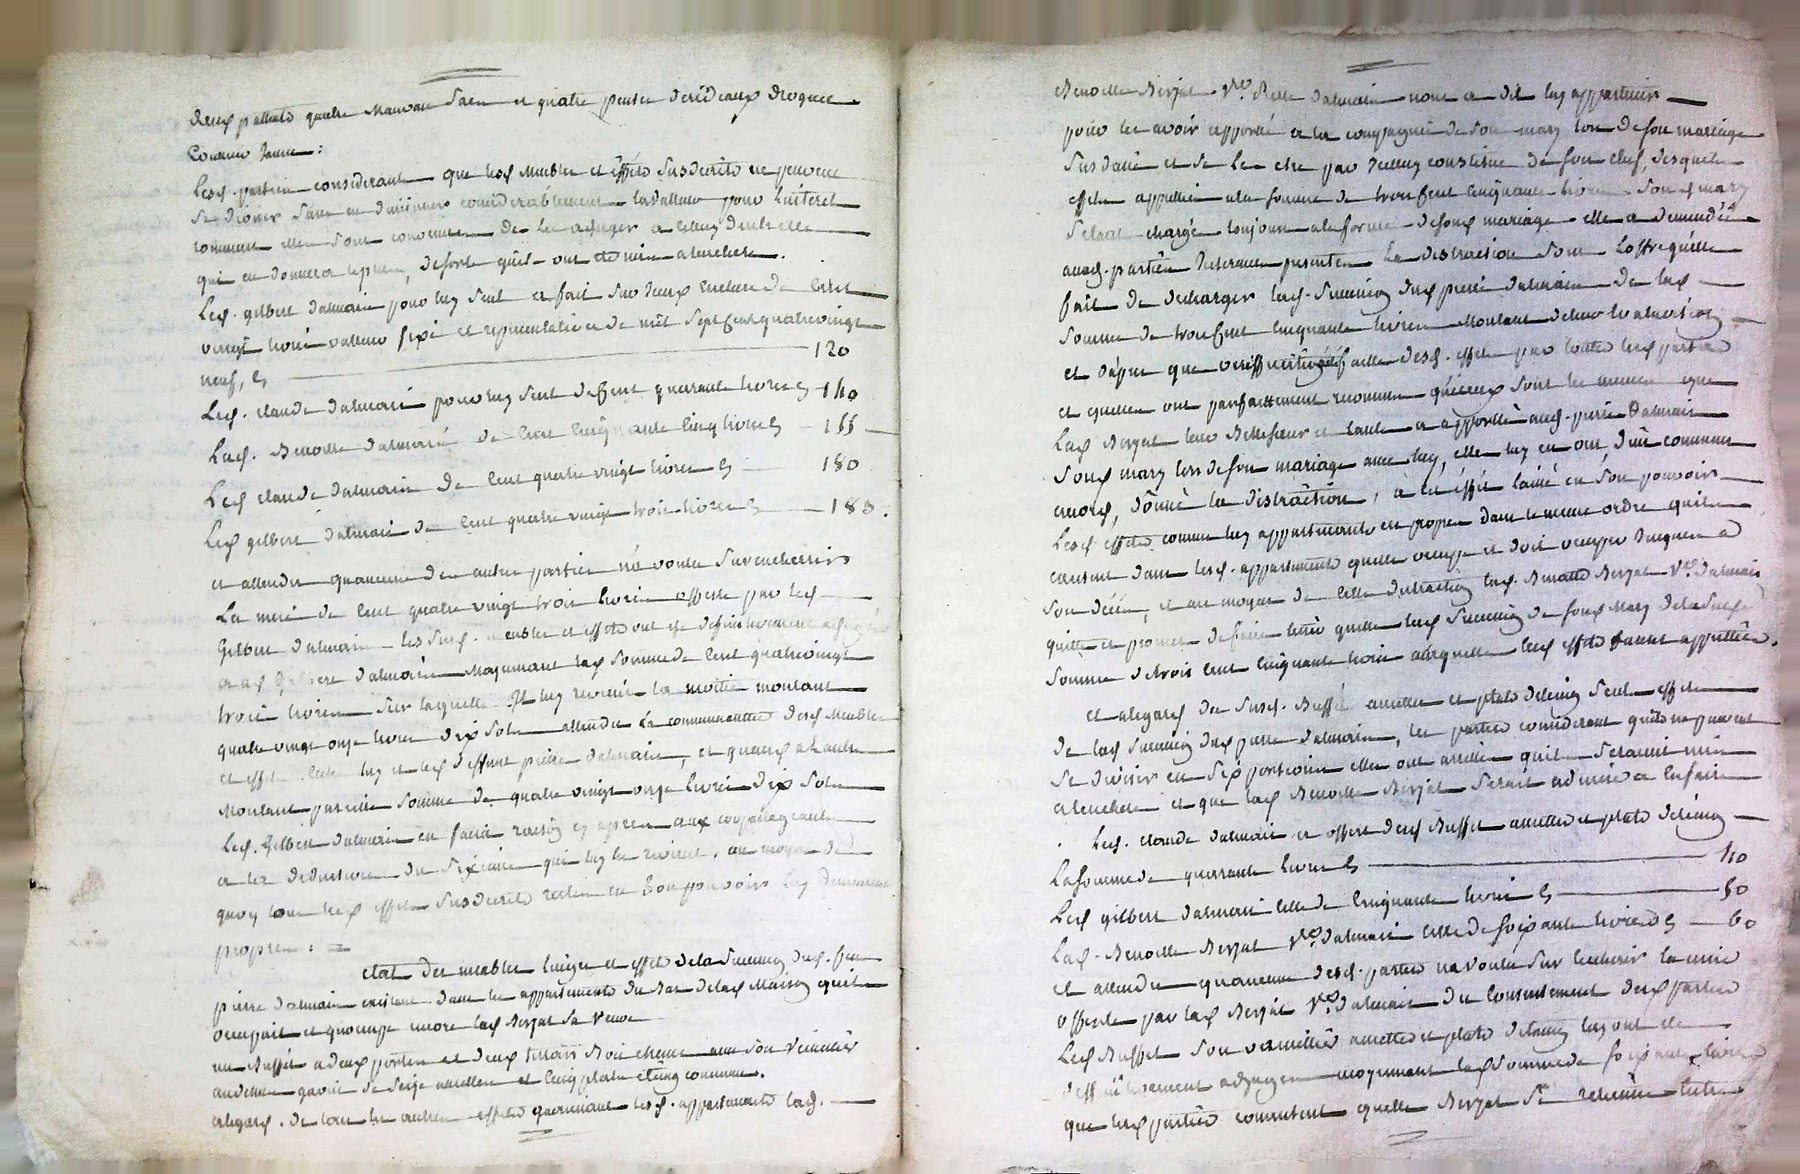 deux paillasses quatre mauvais sacs et quatre pentes de rideaux droguet
couleur jaune :
Lesd. parties considerant que lesd meubles et effets susdecrits ne peuvent
se diviser sans en diminuer considerablement la valleur pour l'interet
commun elles sont convenues de les adjuger a celluy d'entrelles
qui en donnera le plus, de sorte qu'ils ont eté mis a l'enchere.
Led. gilbert dalmais pour luy seul a fait sur iceux l'enchere de cent
vingt livres valleur fixe et representative de mil sept cent quatre vingt
neuf, cy 120
Led. claude dalmais pour luy seul de cent quarante livres cy 140
Lad. Benoitte dalmais de cent cinquante cinq livres cy 155
Led claude dalmais de cent quatre vingt livres cy 180
Led gilbert dalmais de cent quatre vingt trois livres cy 183.
et attendu qu'aucune des autres parties n'a voulu surencherir
La mise de cent quatre vingt trois livres offerte par led
Gilbert dalmais les susd. meubles et effets ont eté deffinitivement adjugés
aud Gilbert dalmais moyennant lad somme de cent quatre vingt
trois livres sur laquelle il luy revient la moitié montant
quatre vingt onze livres dix sols attendu la communauté desd meubles
et effets entre luy et led deffunt pierre dalmais, et quand a l'autre
montant pareille somme de quatre vingt onze livres dix sols
Led. Gilbert dalmais en faira raison cy apres aux copartageants
a la deduction du sixieme qui luy en revient, au moyen de
quoy tous lesd effets susdecrits restent en son pouvoir luy demeurent
propres :
etat des meubles linges et effets de la succession dud. feu
pierre dalmais existant dans les appartements du bas de lad maison qu'il
occupait et qu'occupe encore lad Berjat sa veuve
un buffet a deux portes et deux tiroirs bois chene avec son vaisselier
au dessus garni de seize assiettes et cinq plats etaing commun.
a l'egard. de tous les autres effets garnissant lesd. appartements lad.
Benoitte Berjat Ve. Pierre dalmais nous a dit luy appartenir
pour les avoir apporté en la compagnie de son mary lors de son mariage
susdatté et se les etre par icelluy constitué de son chef, desquels
effets appreciés a la somme de trois cent cinquante livres sond mary
s'etant chargé toujours a la forme de sond mariage elle a demandé
auxd. parties icy presentes la distraction sous l'offre qu'elle
fait de decharger lad. succession dud pierre dalmais de lad
somme de trois cent cinquante livres montant de leur evaluation
et d'apres que verification faitte desd. effets par toutes lesd parties
et qu'elles ont parfaittement reconnu qu'iceux sont les memes que
Lad Berjat leur belle soeur et tante a apporté aud. pierre dalmais
sond mary lors de son mariage avec luy, elles luy en ont, d'un commun
accord, donné la distraction, a cet effet laissé en son pouvoir
lesd. effets comme luy appartenants en propre dans le meme ordre qu'ils
existent dans lesd. appartements qu'elle occupe et doit occuper jusques a
son décès, et au moyen de cette distraction lad. Benoitte Berjat Ve. dalmais
quitte et promet de faire tenir quitte lad succession de sond mary de la susd
somme de trois cent cinquante livres a laquelle lesd effets furent appreciés.
et a l'egard du susd. buffet assiettes et plats d'etaing seuls effets
de lad succession dud pierre dalmais, les parties considerant qu'ils ne peuvent
se diviser en six portions elles ont arreté qu'ils seraient mis
a l'enchere et que lad Benoitte Berjat serait admise a en faire
Led. claude dalmais a offert dud buffet assiettes et plats d'etaing
La somme de quarante livres cy 40
Led gilbert dalmais celle de cinquante livres cy 50
Lad. Benoitte Berjat Ve. dalmais celle de soixante livres cy 60
et attendu qu'aucune desd. parties n'a voulu surencherir la mise
offerte par lad Berjat Ve. dalmais du consentement desd parties
Led buffet son vaisselier assiettes et plats d'etaing luy ont eté
deffinitivement adjugés moyennant lad somme de soixante livres
que lesd parties consentent que lad Berjat Ve retienne entre